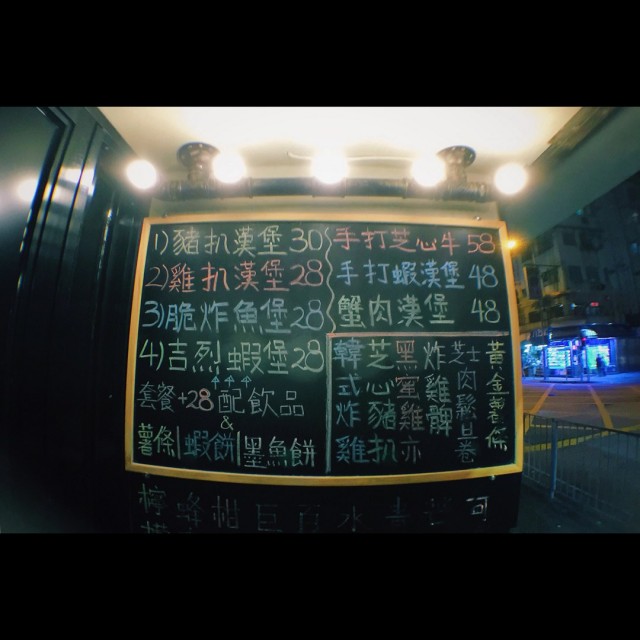 1)豬扒漢堡30
2)雞扒漢堡28
3)脆炸魚堡28
4)吉烈蝦堡28
套餐+28配飲品
&
薯條|蝦餅|墨魚餅
手打芝心牛58
手打蝦漢堡48
蟹肉漢堡48
韓式炸雞
芝心豬扒
黑蜜雞亦
炸雞髀
芝士肉鬆旦卷
黃金薯條